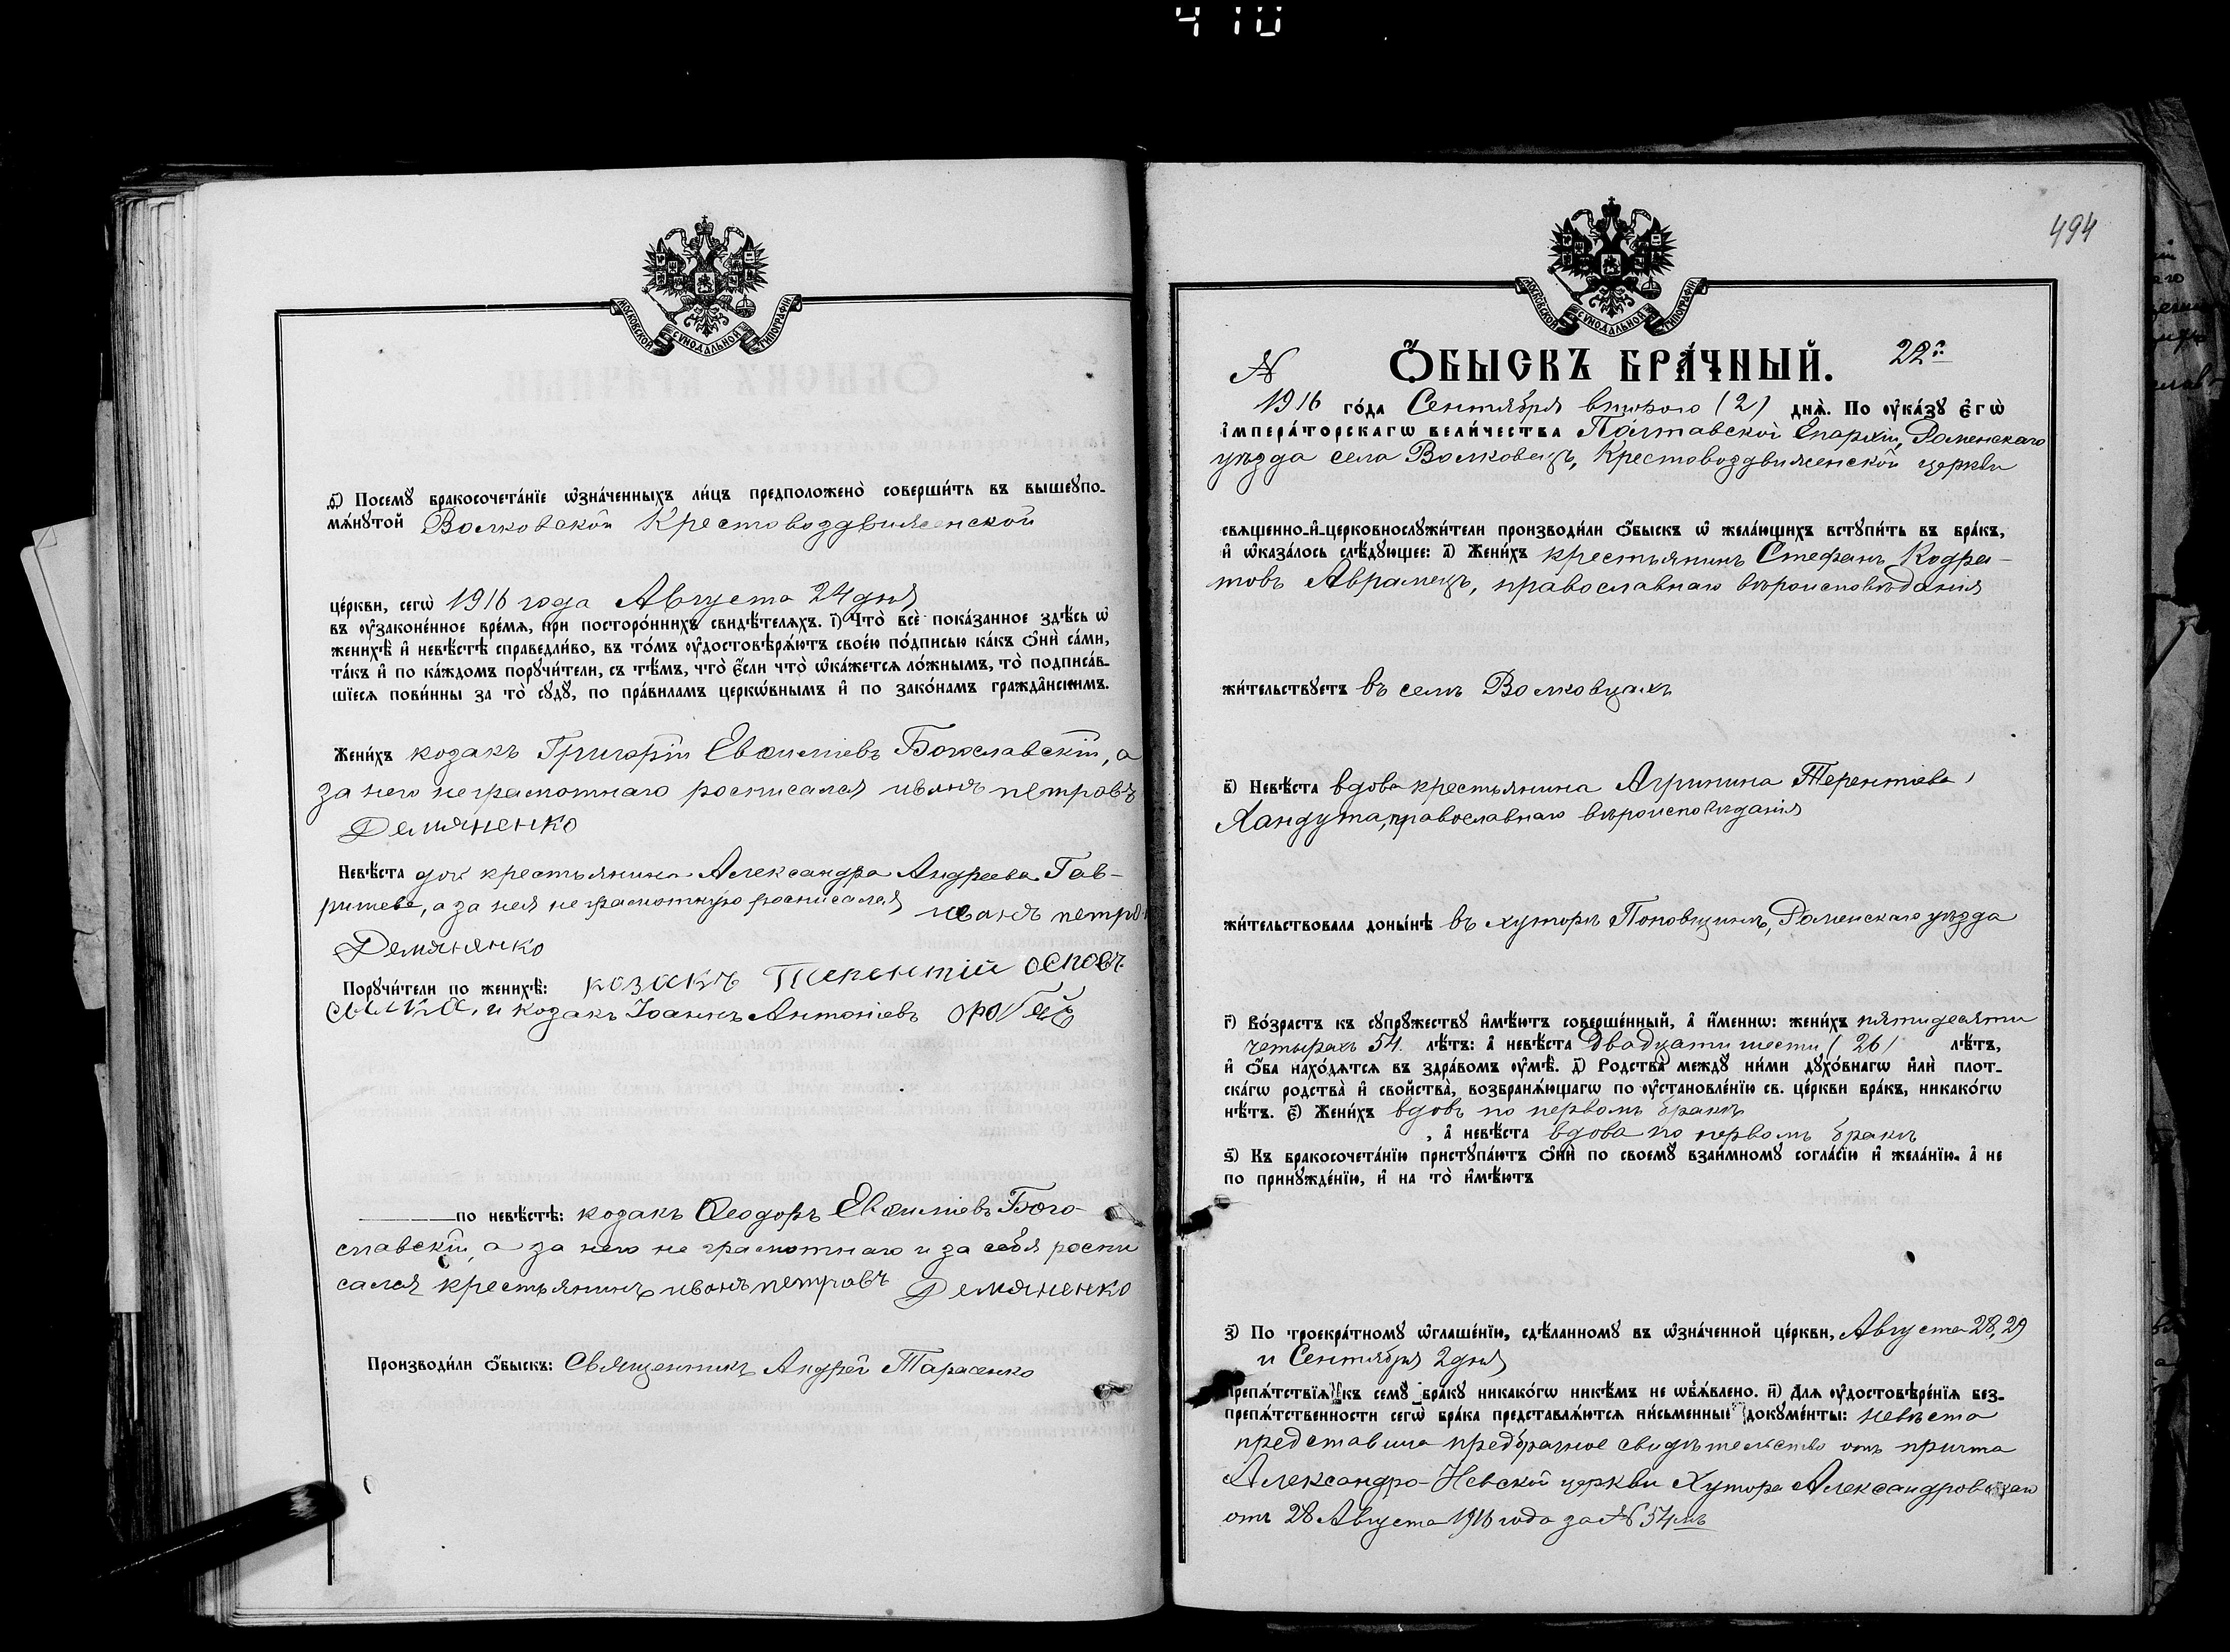 410
МОСКОВСКОЙ СѴНОДАЛЬНОЙ ТИПОГРАФІИ
ѳ҃) Посемꙋ бракосочета́нїе ѡ҆зна́ченныхъ ли́цъ предположено̀ соверши́ть въ вышеꙋпо-
мѧ́нꙋтой Волковской Крестовоздвиженской
це́ркви, сегѡ̀ 1916 года Августа 24 дня
въ ᲂу҆законе́нное вре́мѧ, при посторо́ннихъ свидѣ́телѧхъ. і҃) Что̀ всѐ пока́занное здѣ́сь ѡ҆
женихѣ̀ и҆ невѣ́стѣ справедли́во, въ то́мъ ᲂу҆достовѣрѧ́ютъ свое́ю по́дписью ка́къ ѻ҆нѝ са́ми,
та́къ и҆ по ка́ждомъ порꙋчи́тели, съ тѣ́мъ, что̀ є҆́сли что̀ ѡ҆ка́жетсѧ ло́жнымъ, то̀ подписа́в-
шїесѧ пови́нны за то̀ сꙋдꙋ̀, по пра́виламъ церкѡ́внымъ и҆ по зако́намъ гражда́нскимъ.
Жени́хъ козакъ Григорій Евѳиміевъ Богославскій, а
за него неграмотнаго росписался иванъ петровъ
Демяненко
Невѣ́ста доч крестьянина Александра Андреева Гав-
ришева, а за нея неграмотную росписался иванъ петро
Демяненко
Порꙋчи́тели по женихѣ̀: козакъ Терентій
и козакъ Іоаннъ Антоніевъ
по невѣ́стѣ: козакъ Ѳеодоръ Евѳиміевъ Бого-
славскій, а за него не грамотнаго и за себя роспи
сался крестьянинъ иванъ петровъ Демяненко
Производи́ли ѻ҆́быскъ: Священникъ Андрей Тарасенко
494
МОСКОВСКОЙ СѴНОДАЛЬНОЙ ТИПОГРАФІИ
№ Ѻ҆́БЫСКЪ БРА́ЧНЫЙ. 22й
1916 го́да Сентября второго (2) днѧ̀. По ᲂу҆ка́зꙋ є҆гѡ̀
і҆мпера́торскагѡ вели́чества Полтавской Епархіи, Роменскаго
уѣзда села Волковецъ, Крестовоздвиженской церкви
свѧщенно-и҆-церковнослꙋжи́тели производи́ли ѻ҆́быскъ ѡ҆ жела́ющихъ встꙋпи́ть въ бра́къ,
и҆ ѡ҆каза́лось слѣ́дꙋющее: а҃) Жени́хъ крестьянинъ Стефанъ Кодра-
товъ Аврамецъ, православнаго вѣроисповѣданія
жи́тельствꙋетъ въ селѣ Волковцахъ
в҃) Невѣ́ста вдова крестьянина Агрипина Терентіева
Хандута, православнаго вѣроисповѣданія
жи́тельствовала доны́нѣ въ хуторѣ Поповщинѣ, Роменскаго уѣзда
г҃) Во́зрастъ къ сꙋпрꙋ́жествꙋ и҆мѣ́ютъ соверше́нный, а҆ и҆́меннѡ: жени́хъ пятидесяти
четырехъ 54 лѣ́тъ: а҆ невѣ́ста двадцати шести (26) лѣ́тъ,
и҆ ѻ҆́ба нахо́дѧтсѧ въ здра́вомъ ᲂу҆мѣ̀. д҃) Родства̀ междꙋ ни́ми дꙋхо́внагѡ и҆лѝ плот-
ска́гѡ родства̀ и҆ свойства̀, возбранѧ́ющагѡ по ᲂу҆становле́нїю св. це́ркви бра́къ, никако́гѡ
нѣ́тъ. є҃) Жени́хъ вдовъ по первомъ бракѣ
, а҆ невѣ́ста вдова по первомъ бракѣ
ѕ҃) Къ бракосочета́нїю пристꙋпа́ютъ ѻ҆нѝ по своемꙋ̀ взаи́мномꙋ согла́сїю и҆ жела́нїю, а҆ не
по принꙋжде́нїю, и҆ на то̀ и҆мѣ́ютъ
з҃) По троекра́тномꙋ ѡ҆глаше́нїю, сдѣ́ланномꙋ въ ѡ҆зна́ченной це́ркви, Августа 28, 29
и Сентября 2 дня
препѧ́тствїѧ къ семꙋ̀ бра́кꙋ никако́гѡ никѣ́мъ не ѡ҆б̾ѧ́влено. и҃) Для ᲂу҆достовѣре́нїѧ без-
препѧ́тственности сегѡ̀ бра́ка представлѧ́ютсѧ пи́сьменные докꙋме́нты: невѣста
представила предбрачное свидѣтельство отъ причта
Александро-Невской церкви Хутора Александровскаго
отъ 28 Августа 1916 года за № 54мъ